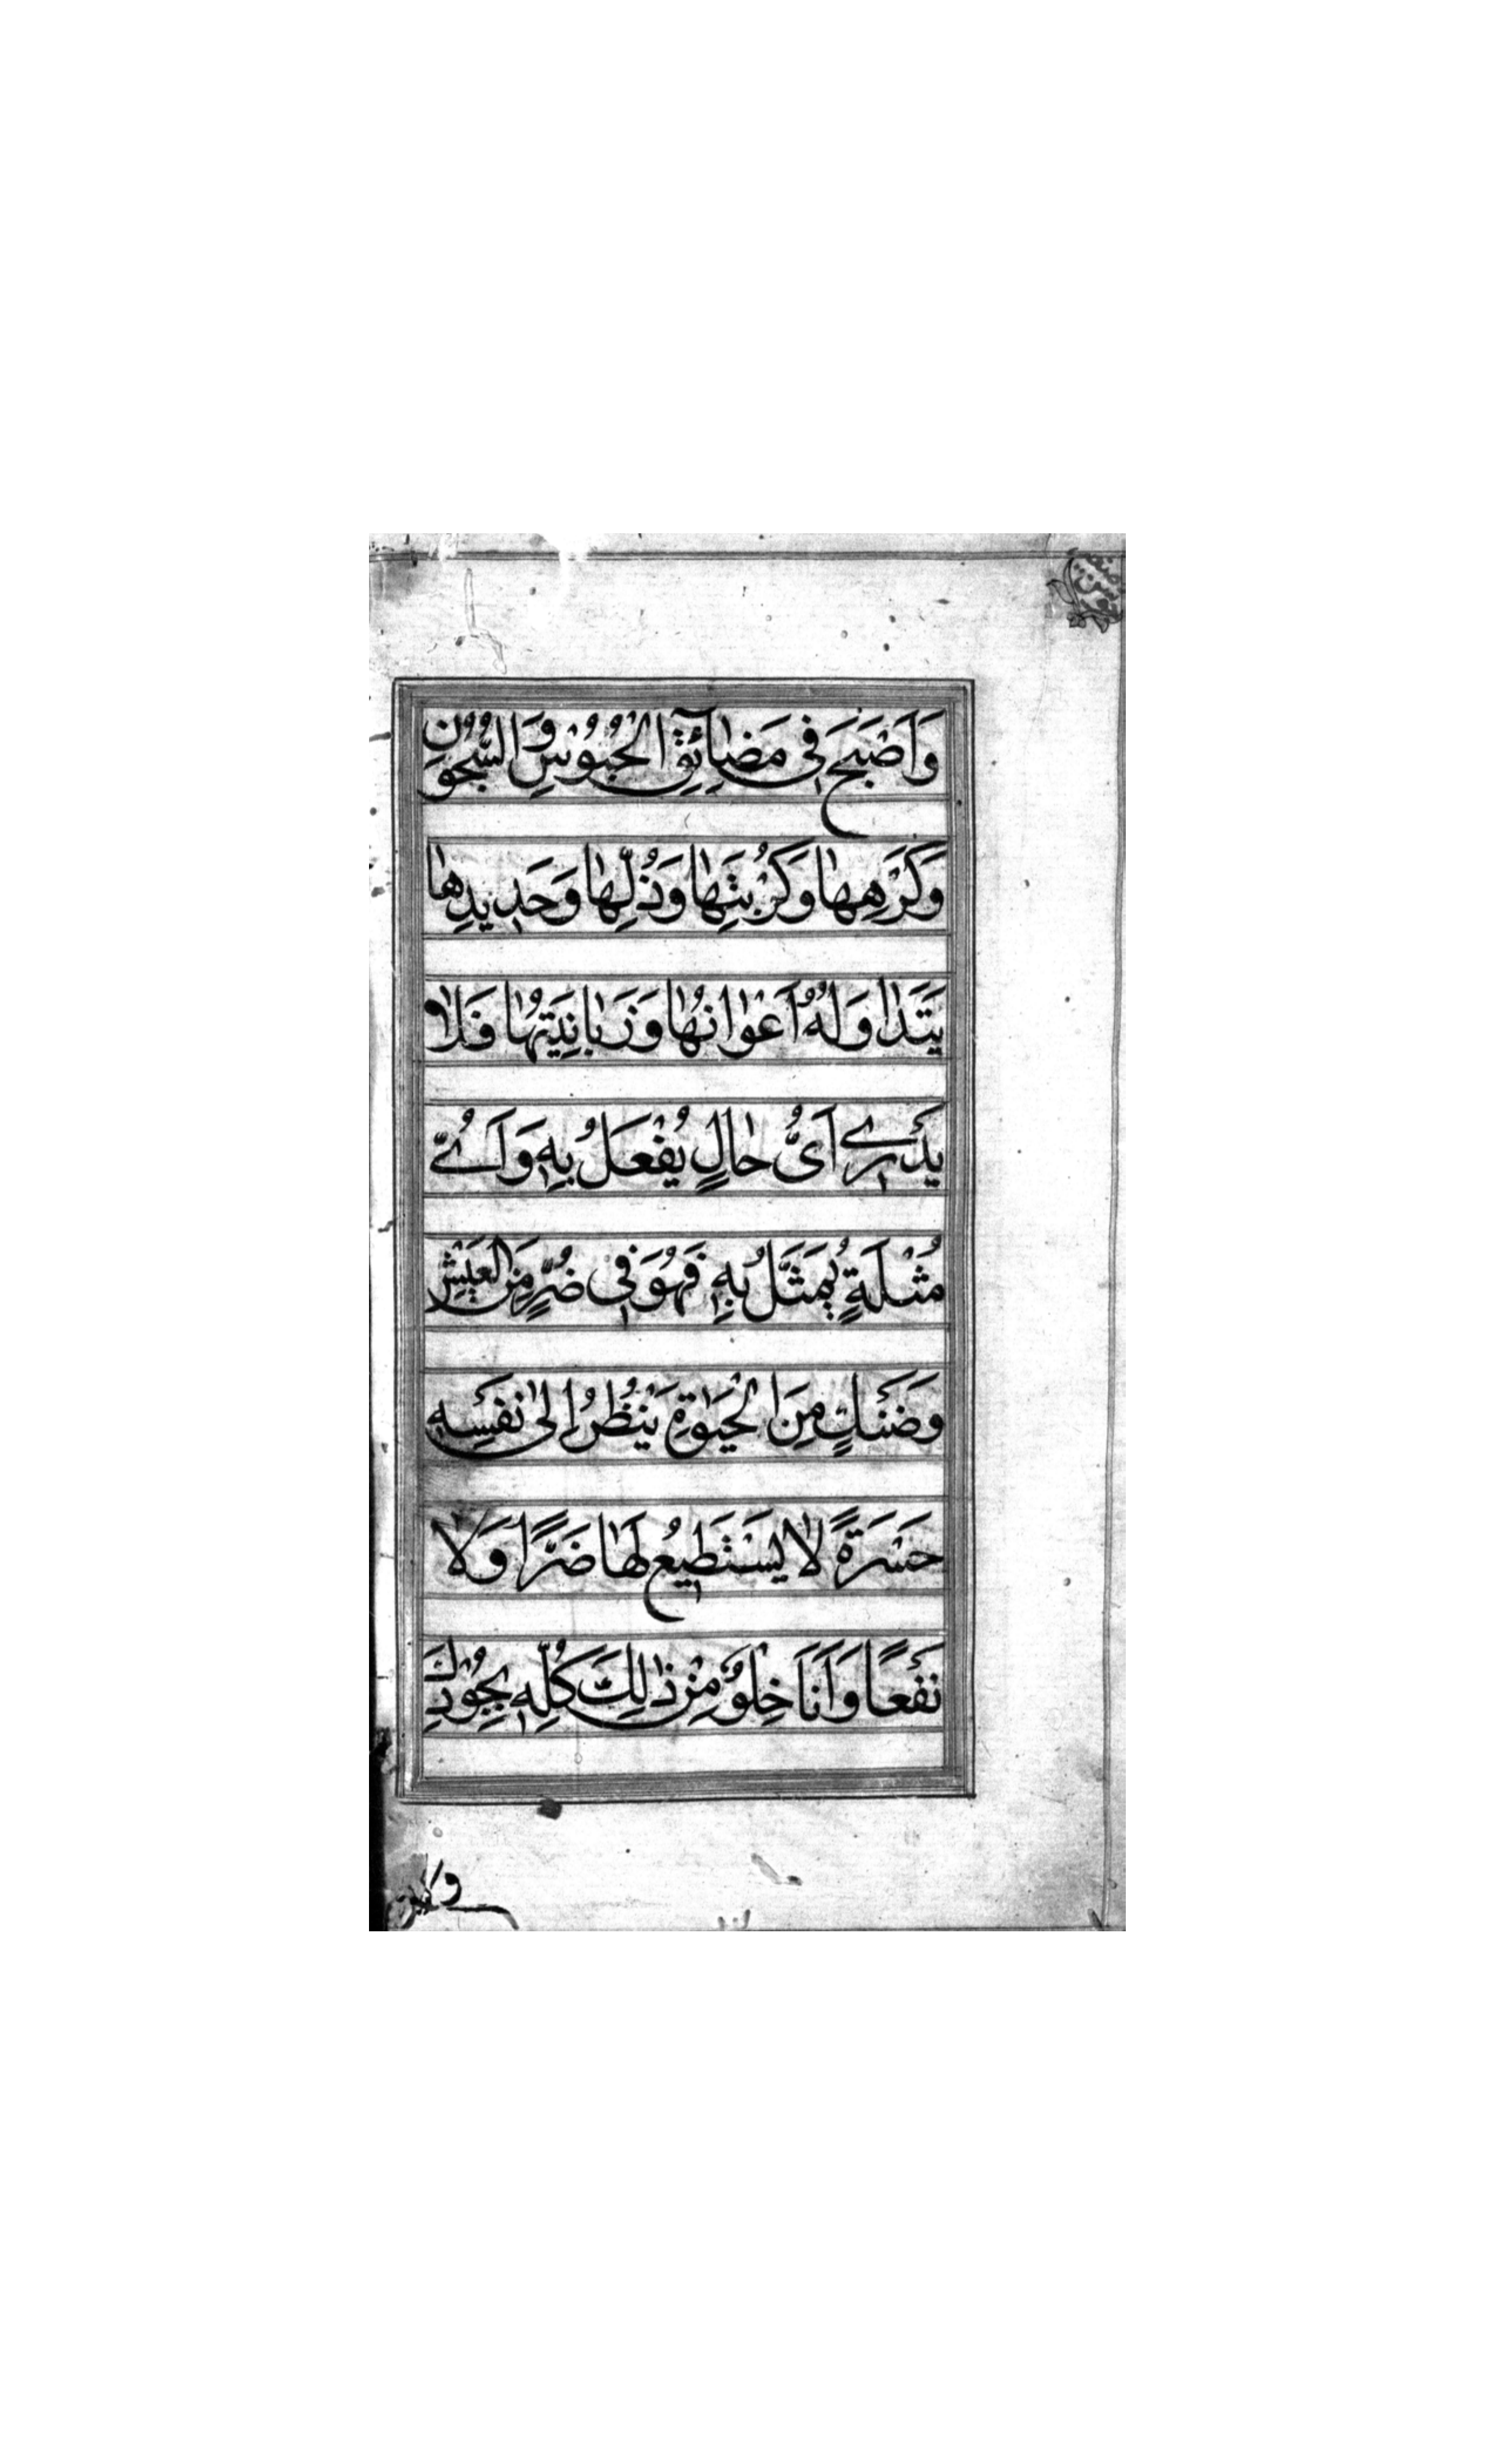 وَاَصْبَحَ فِى مَضٰٓائِقِ الْحُبُوْسِ وَالسُّجُوْنِ
وَكَرْهِهٰا وَكُرْبَتِهٰا وَذُلِّهٰا وَحَدِيدِهٰا
يَتَدٰاوَلُهُ اَعْوٰانُهٰا وَزَبٰانِيَتُهٰا فَلٰا
يَدْرِي اَىُّ حٰالٍ يُفْعَلُ بِهِ وَاَىُّ
مُثْلَةٍ يُمَثَّلُ بِهِ فَهُوَ فِى ضُرٍّ مِنَ الْعَيْشِ
وَضَنْكٍ مِنَ الْحَيٰوةِ يَنْظُرُ اِلىٰ نَفْسِهِ
حَسْرَةً لٰا يَسْتَطِيعُ لَهٰا ضَرًّا وَلٰا
نَفْعًا وَاَنَا خِلْوٌ مِنْ ذٰلِكَ كُلِّهِ بِجُوْدِكَ